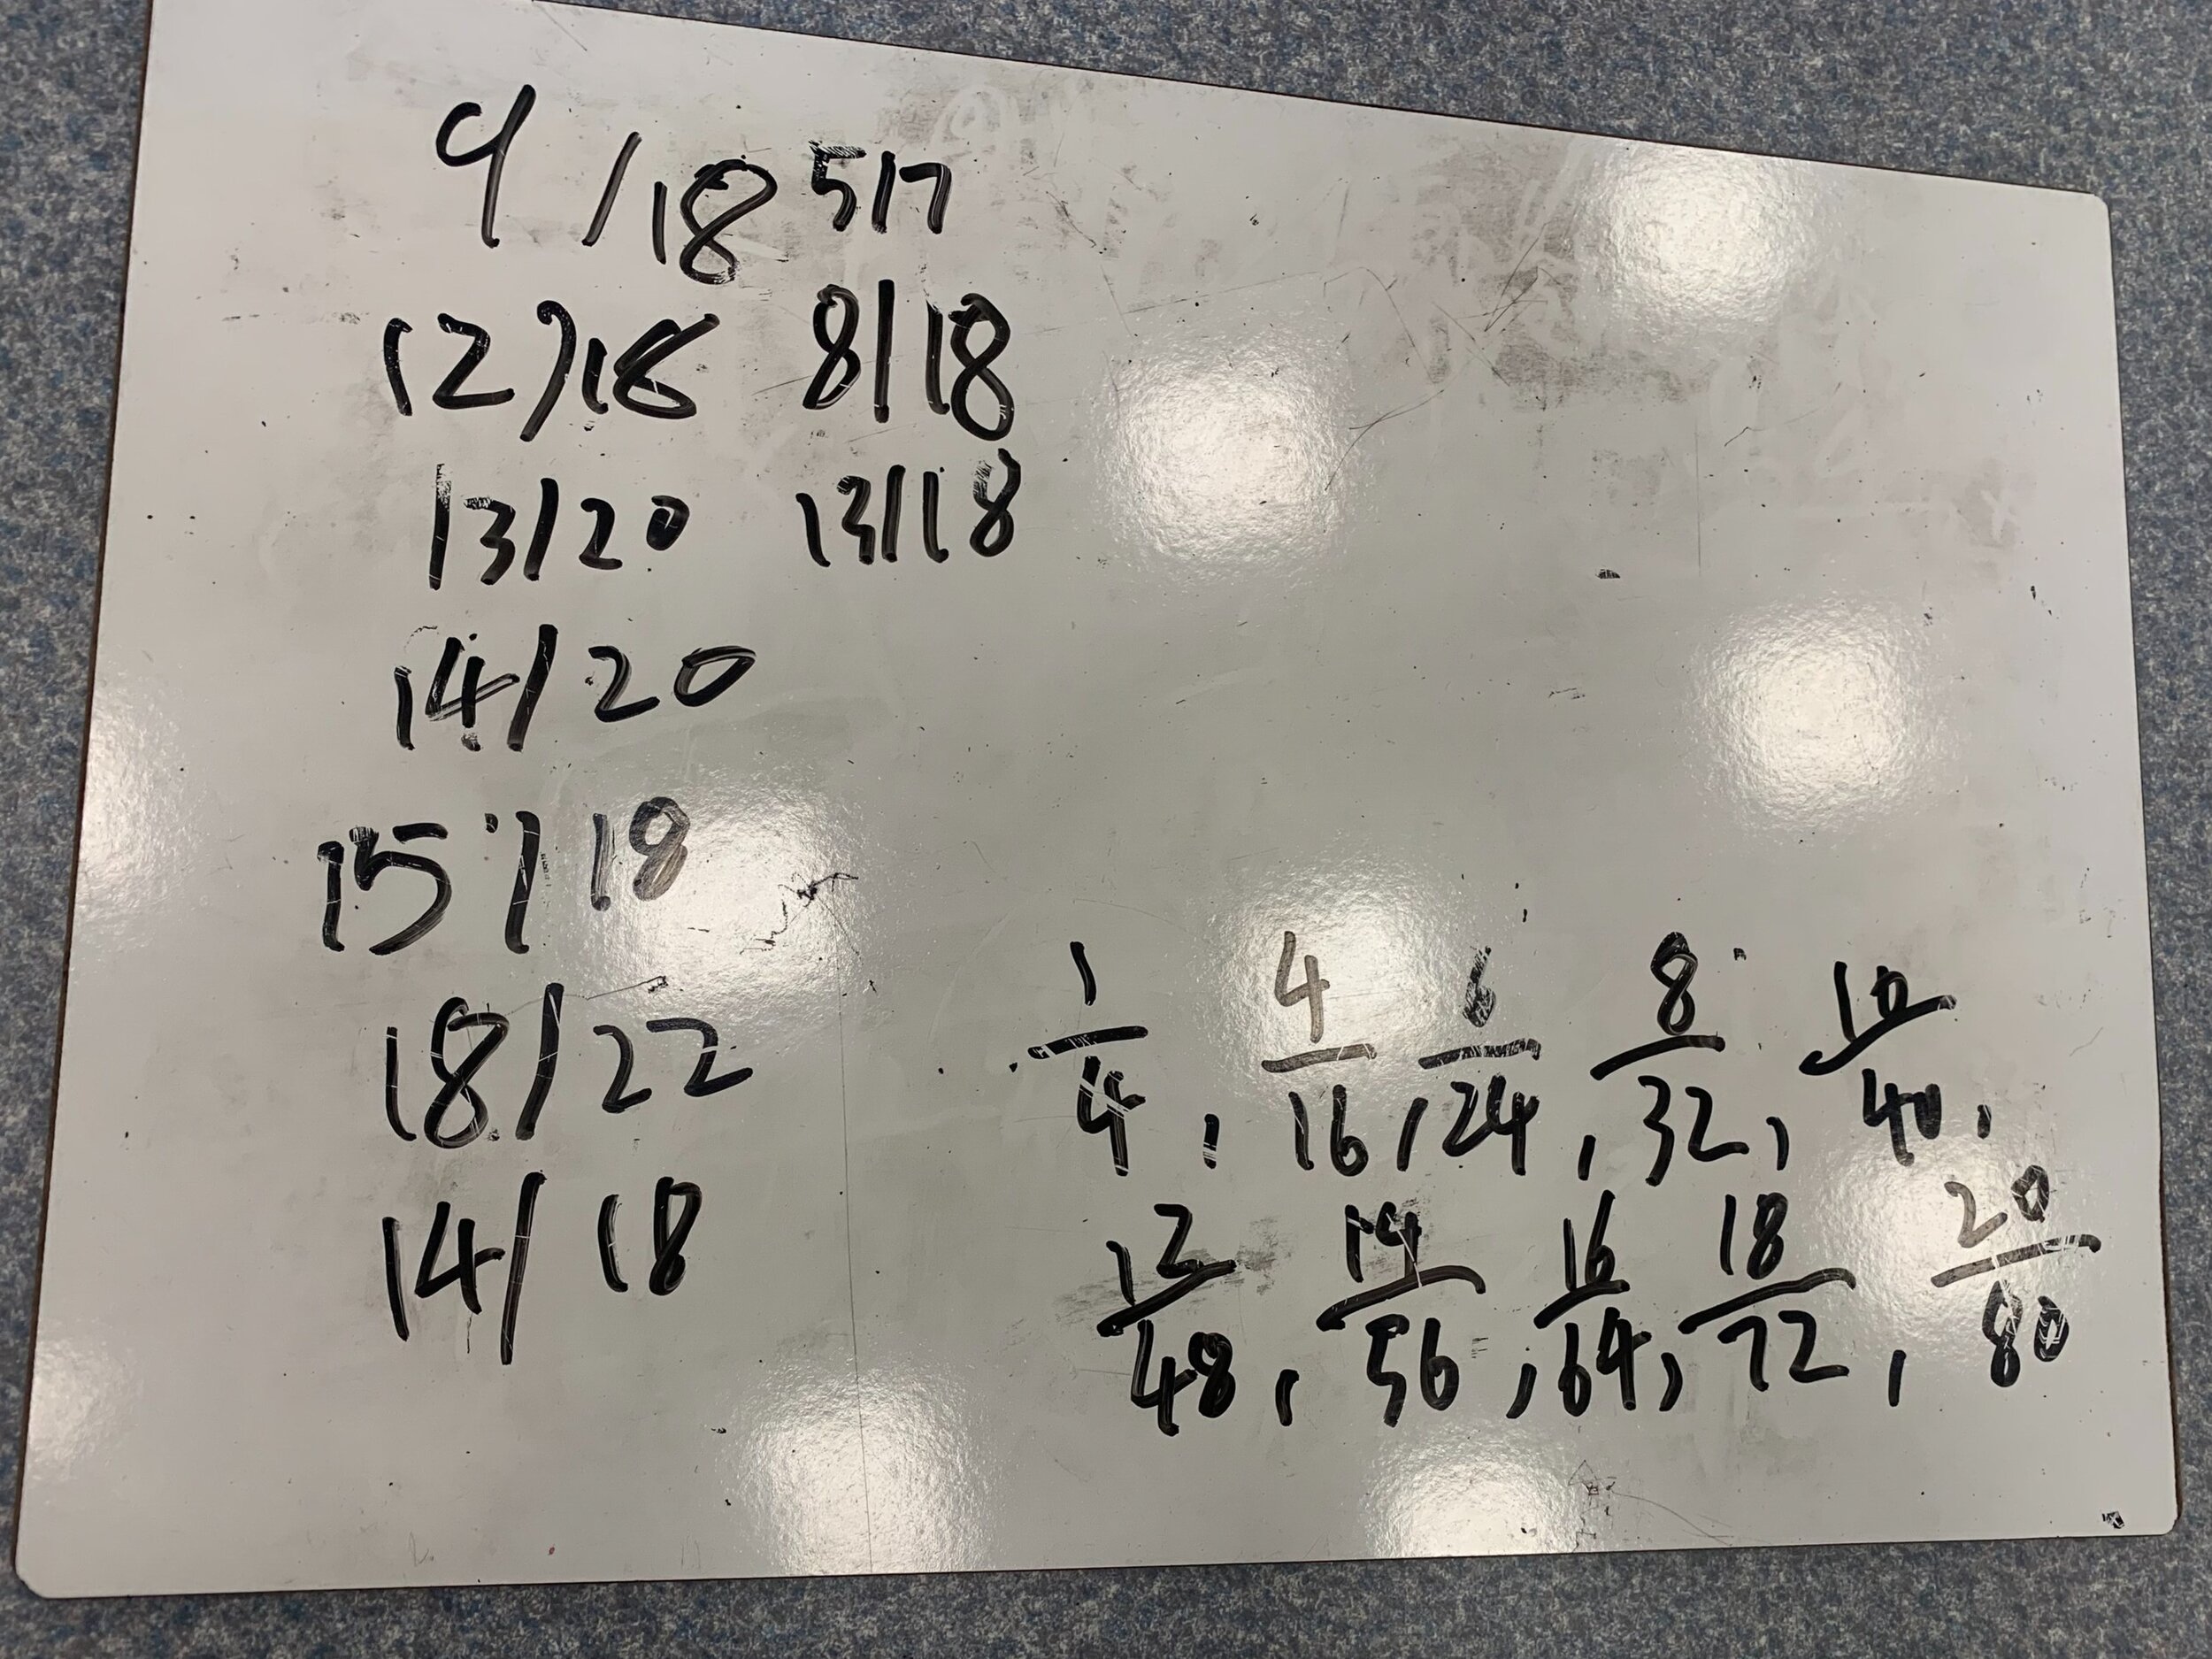 9/18 5/7
12/18 8/18
13/20 13/18
14/20
15/18
18/22
14/18
1/4, 4/16, 6/24, 8/32, 10/40,
12/48, 14/56, 16/64, 18/72, 20/80